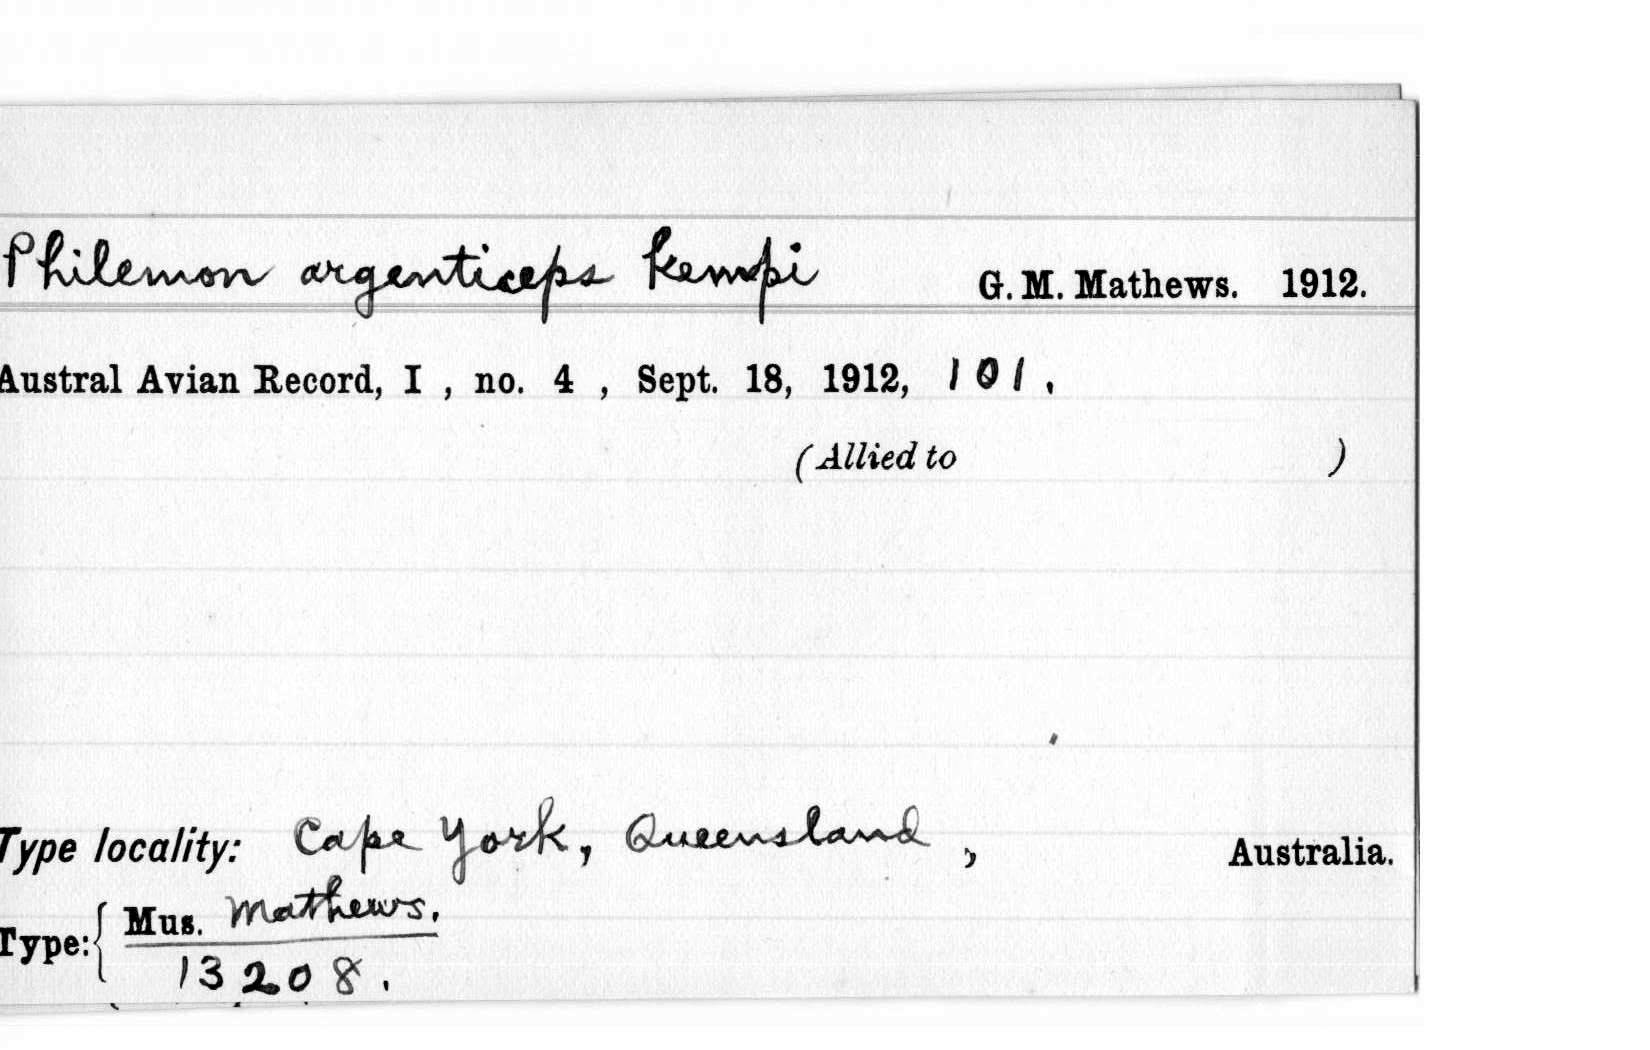 Philemon argenticeps kempi G. M. Mathews. 1912.
Austral Avian Record, I , no. 4 , Sept. 18, 1912, 101.
(Allied to )
Type locality: Cape York, Queensland , Australia.
Type: { Mus. Mathews.
13208.